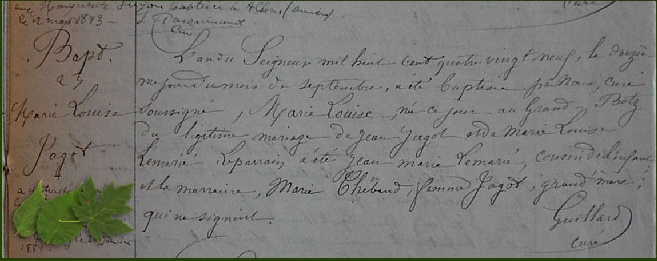 Le 2 mars 1893
Curé
Bapt.
23
Marie Louise
Jagot
L'an du Seigneur mil huit cent quatre vingt neuf, le douziè
me jour du mois de septembre, a été baptisée par Nous, curé
soussigné, Marie Louise, née ce jour au Grand-Betz
du légitime mariage de Jean Jagot et de Marie Louise
Lemarié. Le parrain a été Jean Marie Lemarié, cousin de l'enfant
et la marraine, Marie Thébaud, femme Jagot, grand'mère;
qui ne signent.
Guillard
curé